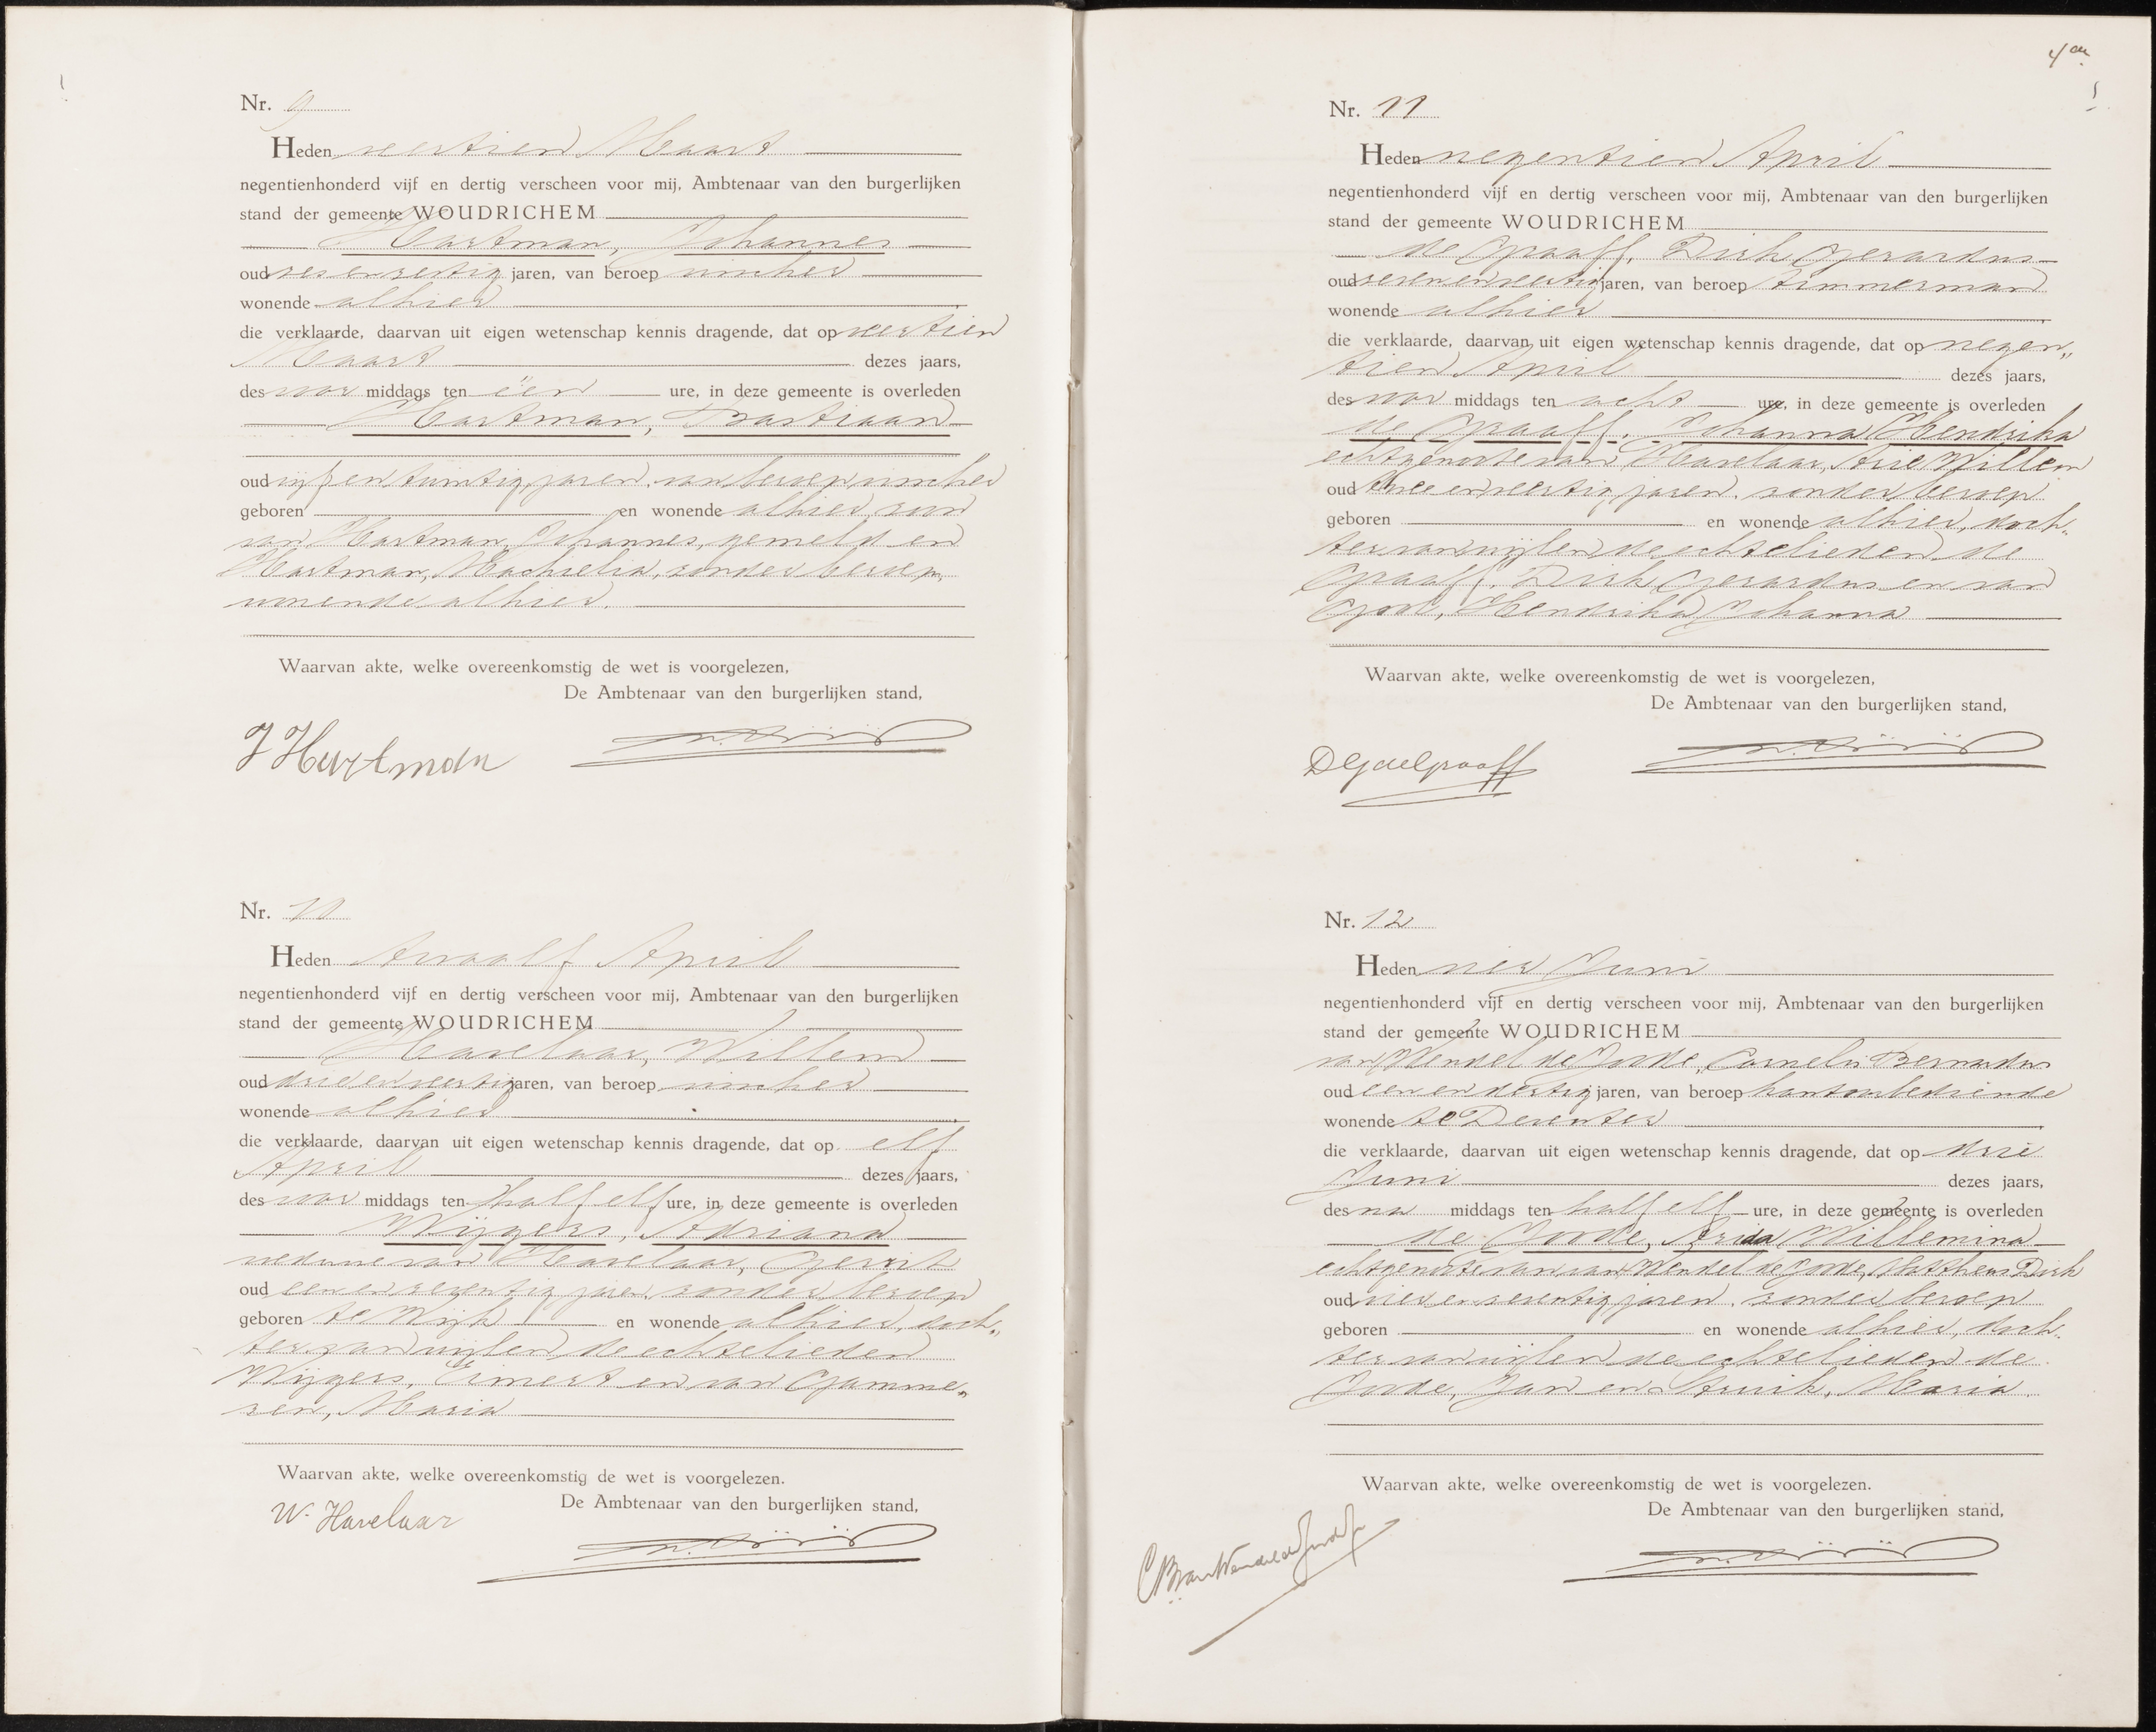 Nr. 9
Heden veertien Maart
negentienhonderd vijf en dertig verscheen voor mij, Ambtenaar van den burgerlijken
stand der gemeente WOUDRICHEM
Hartman, Johannes
oud zes en zestig jaren, van beroep visscher
wonende alhier
die verklaarde, daarvan uit eigen wetenschap kennis dragende, dat op veertien
Maart dezes jaars,
des voor middags ten één ure, in deze gemeente is overleden
Hartman, Bastiaan
oud vijf en twintig jaren, van beroep visscher
geboren en wonende alhier, zoon
van Hartman, Johannes, gemeld en
Hartman, Machielia, zonder beroep,
wonende alhier.
Waarvan akte, welke overeenkomstig de wet is voorgelezen,
De Ambtenaar van den burgerlijken stand,
J Hartman
Nr. 10
Heden twaalf April
negentienhonderd vijf en dertig verscheen voor mij, Ambtenaar van den burgerlijken
stand der gemeente WOUDRICHEM
Havelaar, Willem
oud drie en veertig jaren, van beroep visscher
wonende alhier
die verklaarde, daarvan uit eigen wetenschap kennis dragende, dat op elf
April dezes jaars,
des voor middags ten half elf ure, in deze gemeente is overleden
Wijgers, Adriana
weduwe van Havelaar, Gerrit
oud een en zeventig jaren, zonder beroep
geboren te Wijk en wonende alhier, doch„
ter van wijlen de echtelieden
Wijgers, Eimert en van Gamme„
ren, Maria
Waarvan akte, welke overeenkomstig de wet is voorgelezen.
De Ambtenaar van den burgerlijken stand,
W. Havelaar
4de
Nr. 11
Heden negentien April
negentienhonderd vijf en dertig verscheen voor mij, Ambtenaar van den burgerlijken
stand der gemeente WOUDRICHEM
de Graaff, Dirk Gerardus
oud zeven en veertig jaren, van beroep timmerman
wonende alhier
die verklaarde, daarvan uit eigen wetenschap kennis dragende, dat op negen„
tien April dezes jaars,
des voor middags ten acht ure, in deze gemeente is overleden
de Graaff, Johanna Hendrika
echtgenoote van Havelaar, Arie Willem
oud twee en veertig jaren, zonder beroep
geboren en wonende alhier, doch„
ter van wijlen de echtelieden de
Graaff, Dirk Gerardus en van
Gool, Hendrika Johanna
Waarvan akte, welke overeenkomstig de wet is voorgelezen,
De Ambtenaar van den burgerlijken stand,
DGdeGraaff
Nr. 12
Heden vier Juni
negentienhonderd vijf en dertig verscheen voor mij, Ambtenaar van den burgerlijken
stand der gemeente WOUDRICHEM
van Wendel de Joode, Cornelis Bernardus
oud een en dertig jaren, van beroep kantoorbediende
wonende te Deventer
die verklaarde, daarvan uit eigen wetenschap kennis dragende, dat op drie
Juni dezes jaars,
des na middags ten half elf ure, in deze gemeente is overleden
de Joode, Arida Willemina
echtgenoote van van Wendel de Joode, Mattheus Dirk
oud vier en zeventig jaren, zonder beroep
geboren en wonende alhier, doch„
ter van wijlen de echtelieden de
Joode, Jan en Struik, Maria.
Waarvan akte, welke overeenkomstig de wet is voorgelezen.
De Ambtenaar van den burgerlijken stand,
CBvanWendeldeJoode